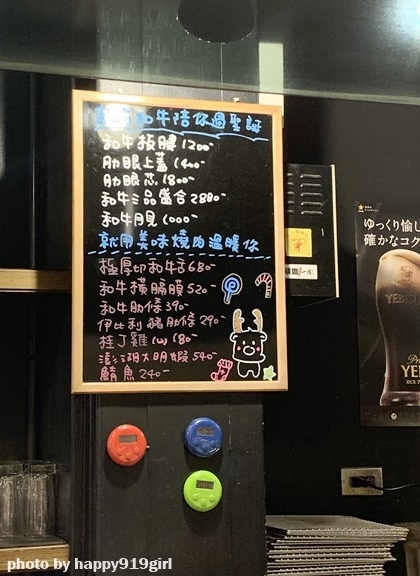 和牛陪你過聖誕
和牛板腱 1200-
肋眼上蓋 1400-
肋眼芯 1800-
和牛三品盛合 2880-
和牛月見 1000-
就用美味燒肉溫暖你
極厚切和牛舌 680-
和牛橫膈膜 520-
和牛肋條 390-
伊比利豬肋條 290-
桂丁雞 180-
澎湖大明蝦 540-
鯖魚 240-
ゆっくり愉し
確かなコク
YEBI
YE
photo by happy919girl